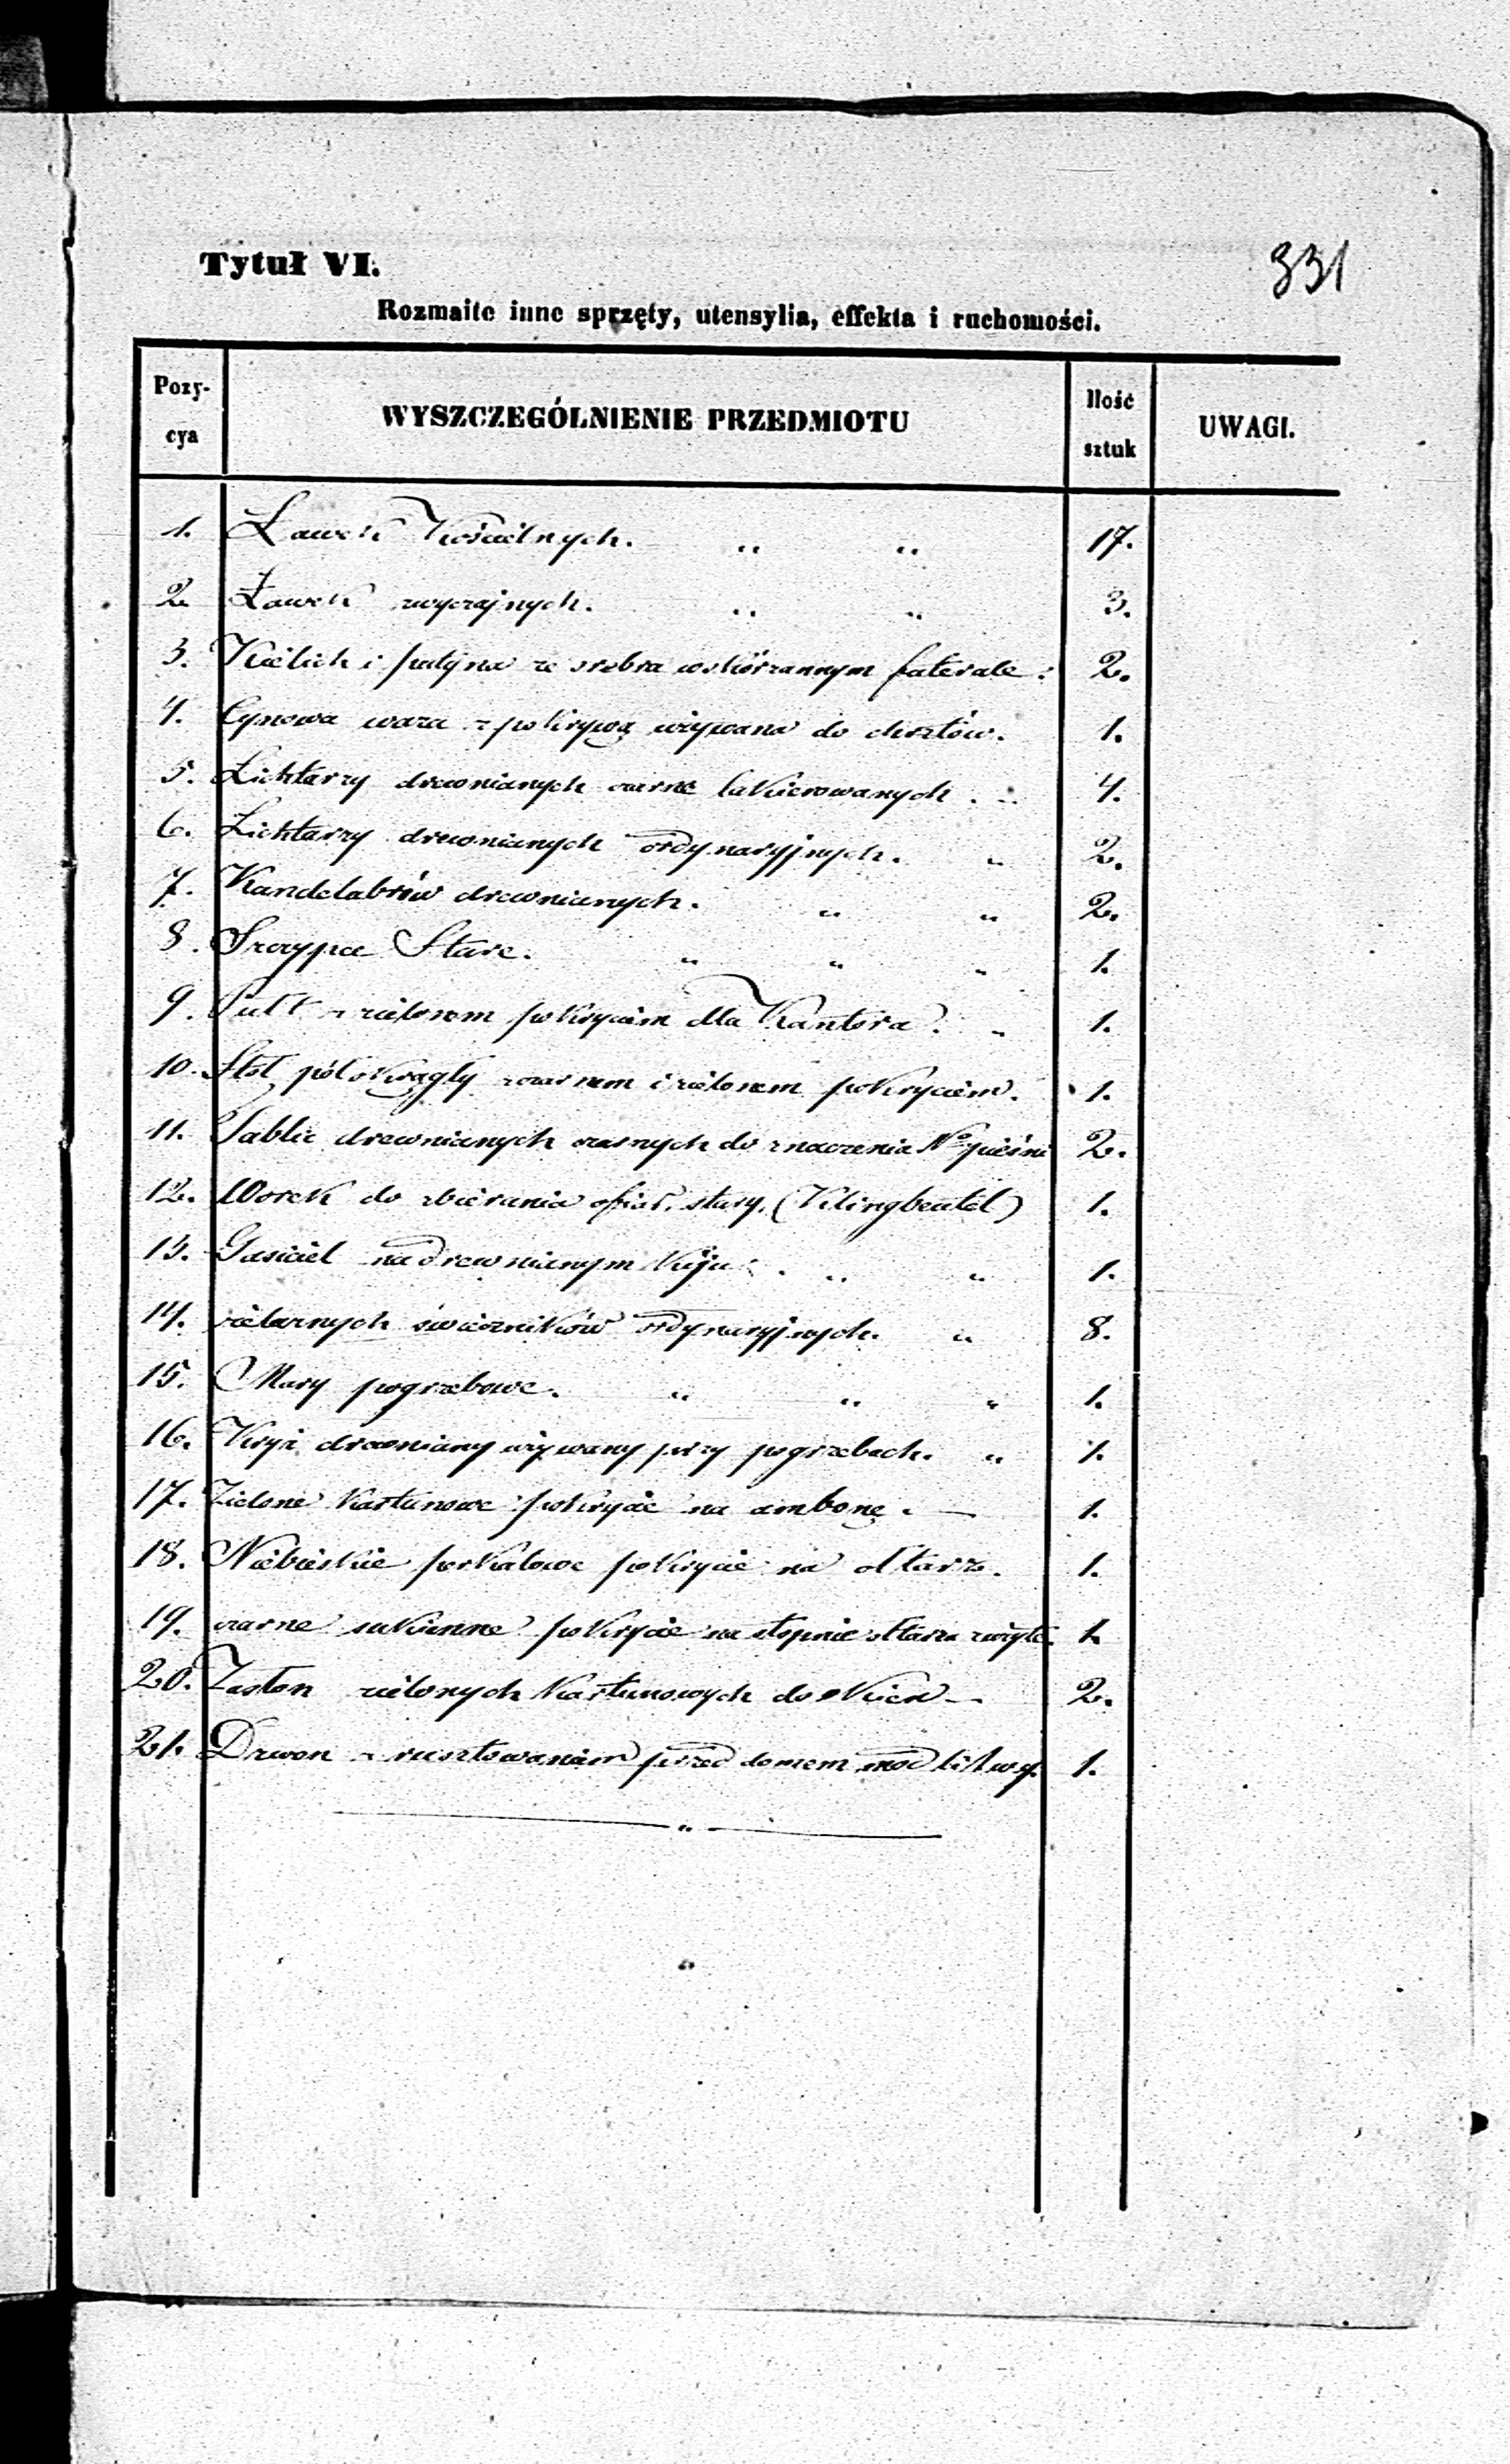 331
Tytuł VI.
Rozmaite inne sprzęty, utensylia, effekta i ruchomości.
Pozy-cya WYSZCZEGÓLNIENIE PRZEDMIOTU Ilość sztuk UWAGI.
1. Ławek Kościelnych. „ „ 17.
2. Ławek zwyczajnych. „ „ 3.
3. Kielich i patyna ze srebra w skórzannym faterale. 2.
4. Cynowa waza z pokrywą używana do chrztów. 1.
5. Lichtarzy drewnianych czarne lakierowanych. „ 4.
6. Lichtarzy drewnianych ordynaryjnych. „ 2.
7. Kandelabrów drewnianych. „ „ 2.
8. Szczypce Stare. „ „ „ 1.
9. Pult z zielonem pokryciem dla Kantora. „ 1.
10. Stół półokrągły z czarnem i zielonem pokryciem. 1.
11. Tablic drewnianych czarnych do znaczenia No pieśni 2.
12. Worek do zbierania ofiar, stary. (Klingbeutel) 1.
13. Gasiciel na drewnianym kiju. „ „ 1.
14. świeczników ordynaryjnych. „ 8.
15. Mary pogrzebowe. „ „ „ 1.
16. Krzyż drewniany używany przy pogrzebach. „ 1.
17. Zielone kartunowe pokrycie na ambonę. — 1.
18. Niebieskie perkalowe pokrycie na ołtarz. 1.
19. czarne sukienne pokrycie na stopnie ołtarza zużyte. 1.
20. Zasłon zielonych kartunowych do okien — 2.
21. Dzwon z rusztowaniem przed domem modlitwy. 1.